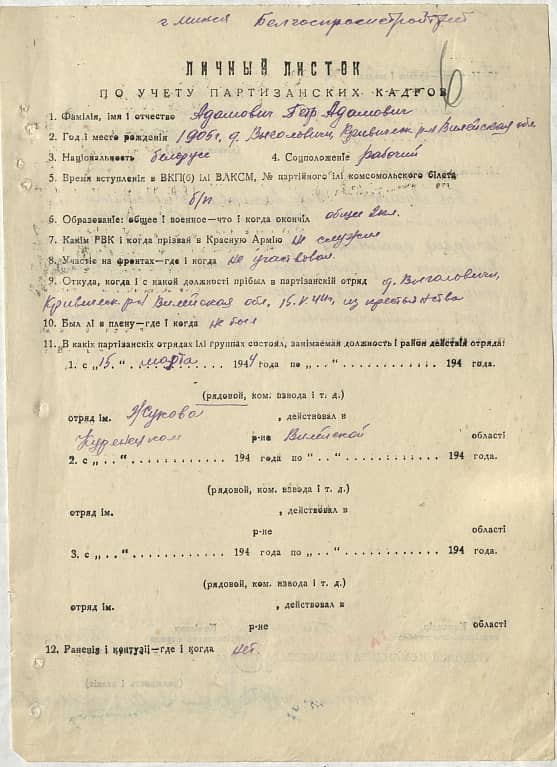 г Минск Белгоспроектстройтрест
6
ЛИЧНЫЙ ЛИСТОК
ПО УЧЕТУ ПАРТИЗАНСКИХ КАДРОВ
1. Фамілія, імя і отчество Адамович Петр Адамович
2. Год і место рожденія 1905 г, д. Выголовичи, Кривичск. р-н Вилейская обл
3. Національность белорусс 4. Соцположеніе рабочий
5. Время вступленія в ВКП(б) ілі ВЛКСМ, № партійного ілі комсомольского білета
б/п
6. Образованіе: общее і военное—что і когда окончіл общее 2кл.
7. Какім РВК і когда прізван в Красную Армію не служил
8. Участіе на фронтах—где і когда не участвовал
9. Откуда, когда і с какой должності прібыл в партізанскій отряд д. Выголовичи,
Кривичск. р-н Вилейская обл, 15.V.44г, из крестьянства
10. Был лі в плену—где і когда не был
11. В какіх партізанскіх отрядах ілі группах состоял, занімаемая должность і район действія отряда:
1. с „15." марта 1944 года по „ . . " . . . . . . . . . . . . 194 года.
(рядовой, ком. взвода і т. д.)
отряд ім. Жукова , действовал в
Куренецком р-не Вилейской області
2. с „ . . " . . . . . . . . . . . . 194 года по „ . . " . . . . . . . . . . . . 194 года.
(рядовой, ком. взвода і т. д.)
отряд ім. , действовал в
р-не області
3. с „ . . " . . . . . . . . . . . . 194 года по „ . . " . . . . . . . . . . . . 194 года.
(рядовой, ком. взвода і т. д.)
отряд ім. , действовал в
р-не області
12. Раненія і контузіі—где і когда нет.